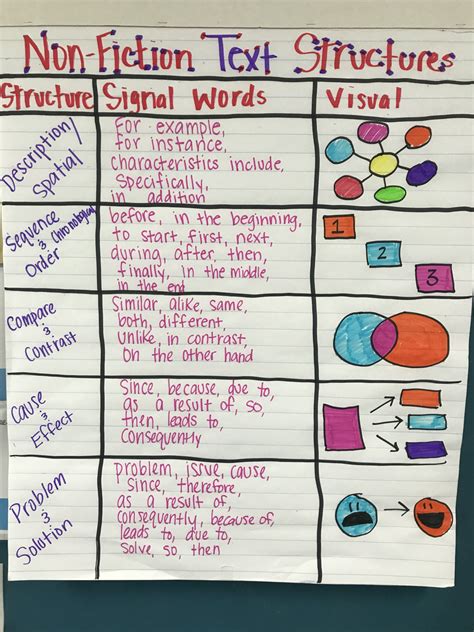 Non-Fiction Text Structures
Structure Signal Words Visual
Description/
Spatial
For example,
for instance,
characteristics include,
Specifically,
in addition
Sequence
& Chronological
Order
before, in the beginning,
to start, first, next,
during, after, then,
finally, in the middle,
in the end
1
2
3
Compare
&
Contrast
Similar, alike, same,
both, different,
Unlike, in contrast,
On the other hand
Cause
&
Effect
Since, because, due to,
as a result of, so,
then, leads to,
Consequently
Problem
&
Solution
problem, issue, cause,
Since, therefore,
as a result of,
consequently, because of,
leads to, due to,
Solve, so, then